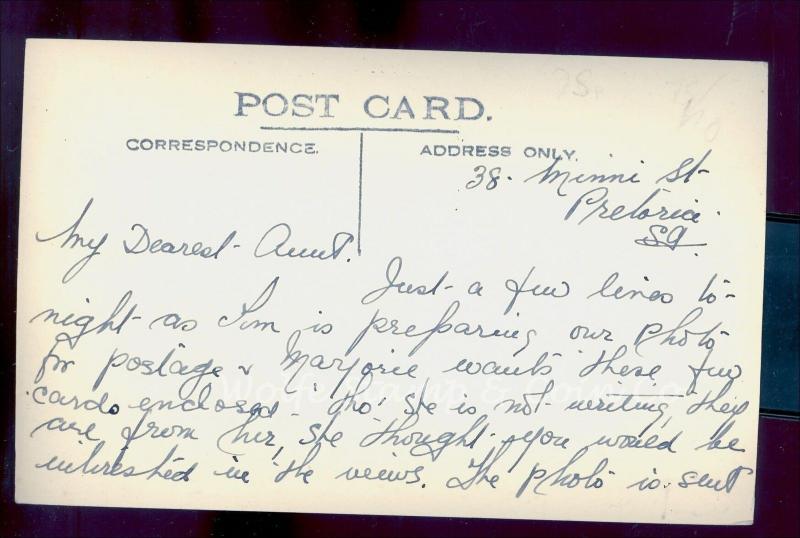 POST CARD.
CORRESPONDENCE.
ADDRESS ONLY.
38. Minni St
Pretoria.
SA.
My Dearest Aunt.
Just a few lines to-
night as Jim is preparing our photo
for postage & Marjorie wants these few
cards enclosed tho' she is not writing, they
are from her, she thought you would be
interested in the views. The photo is sent